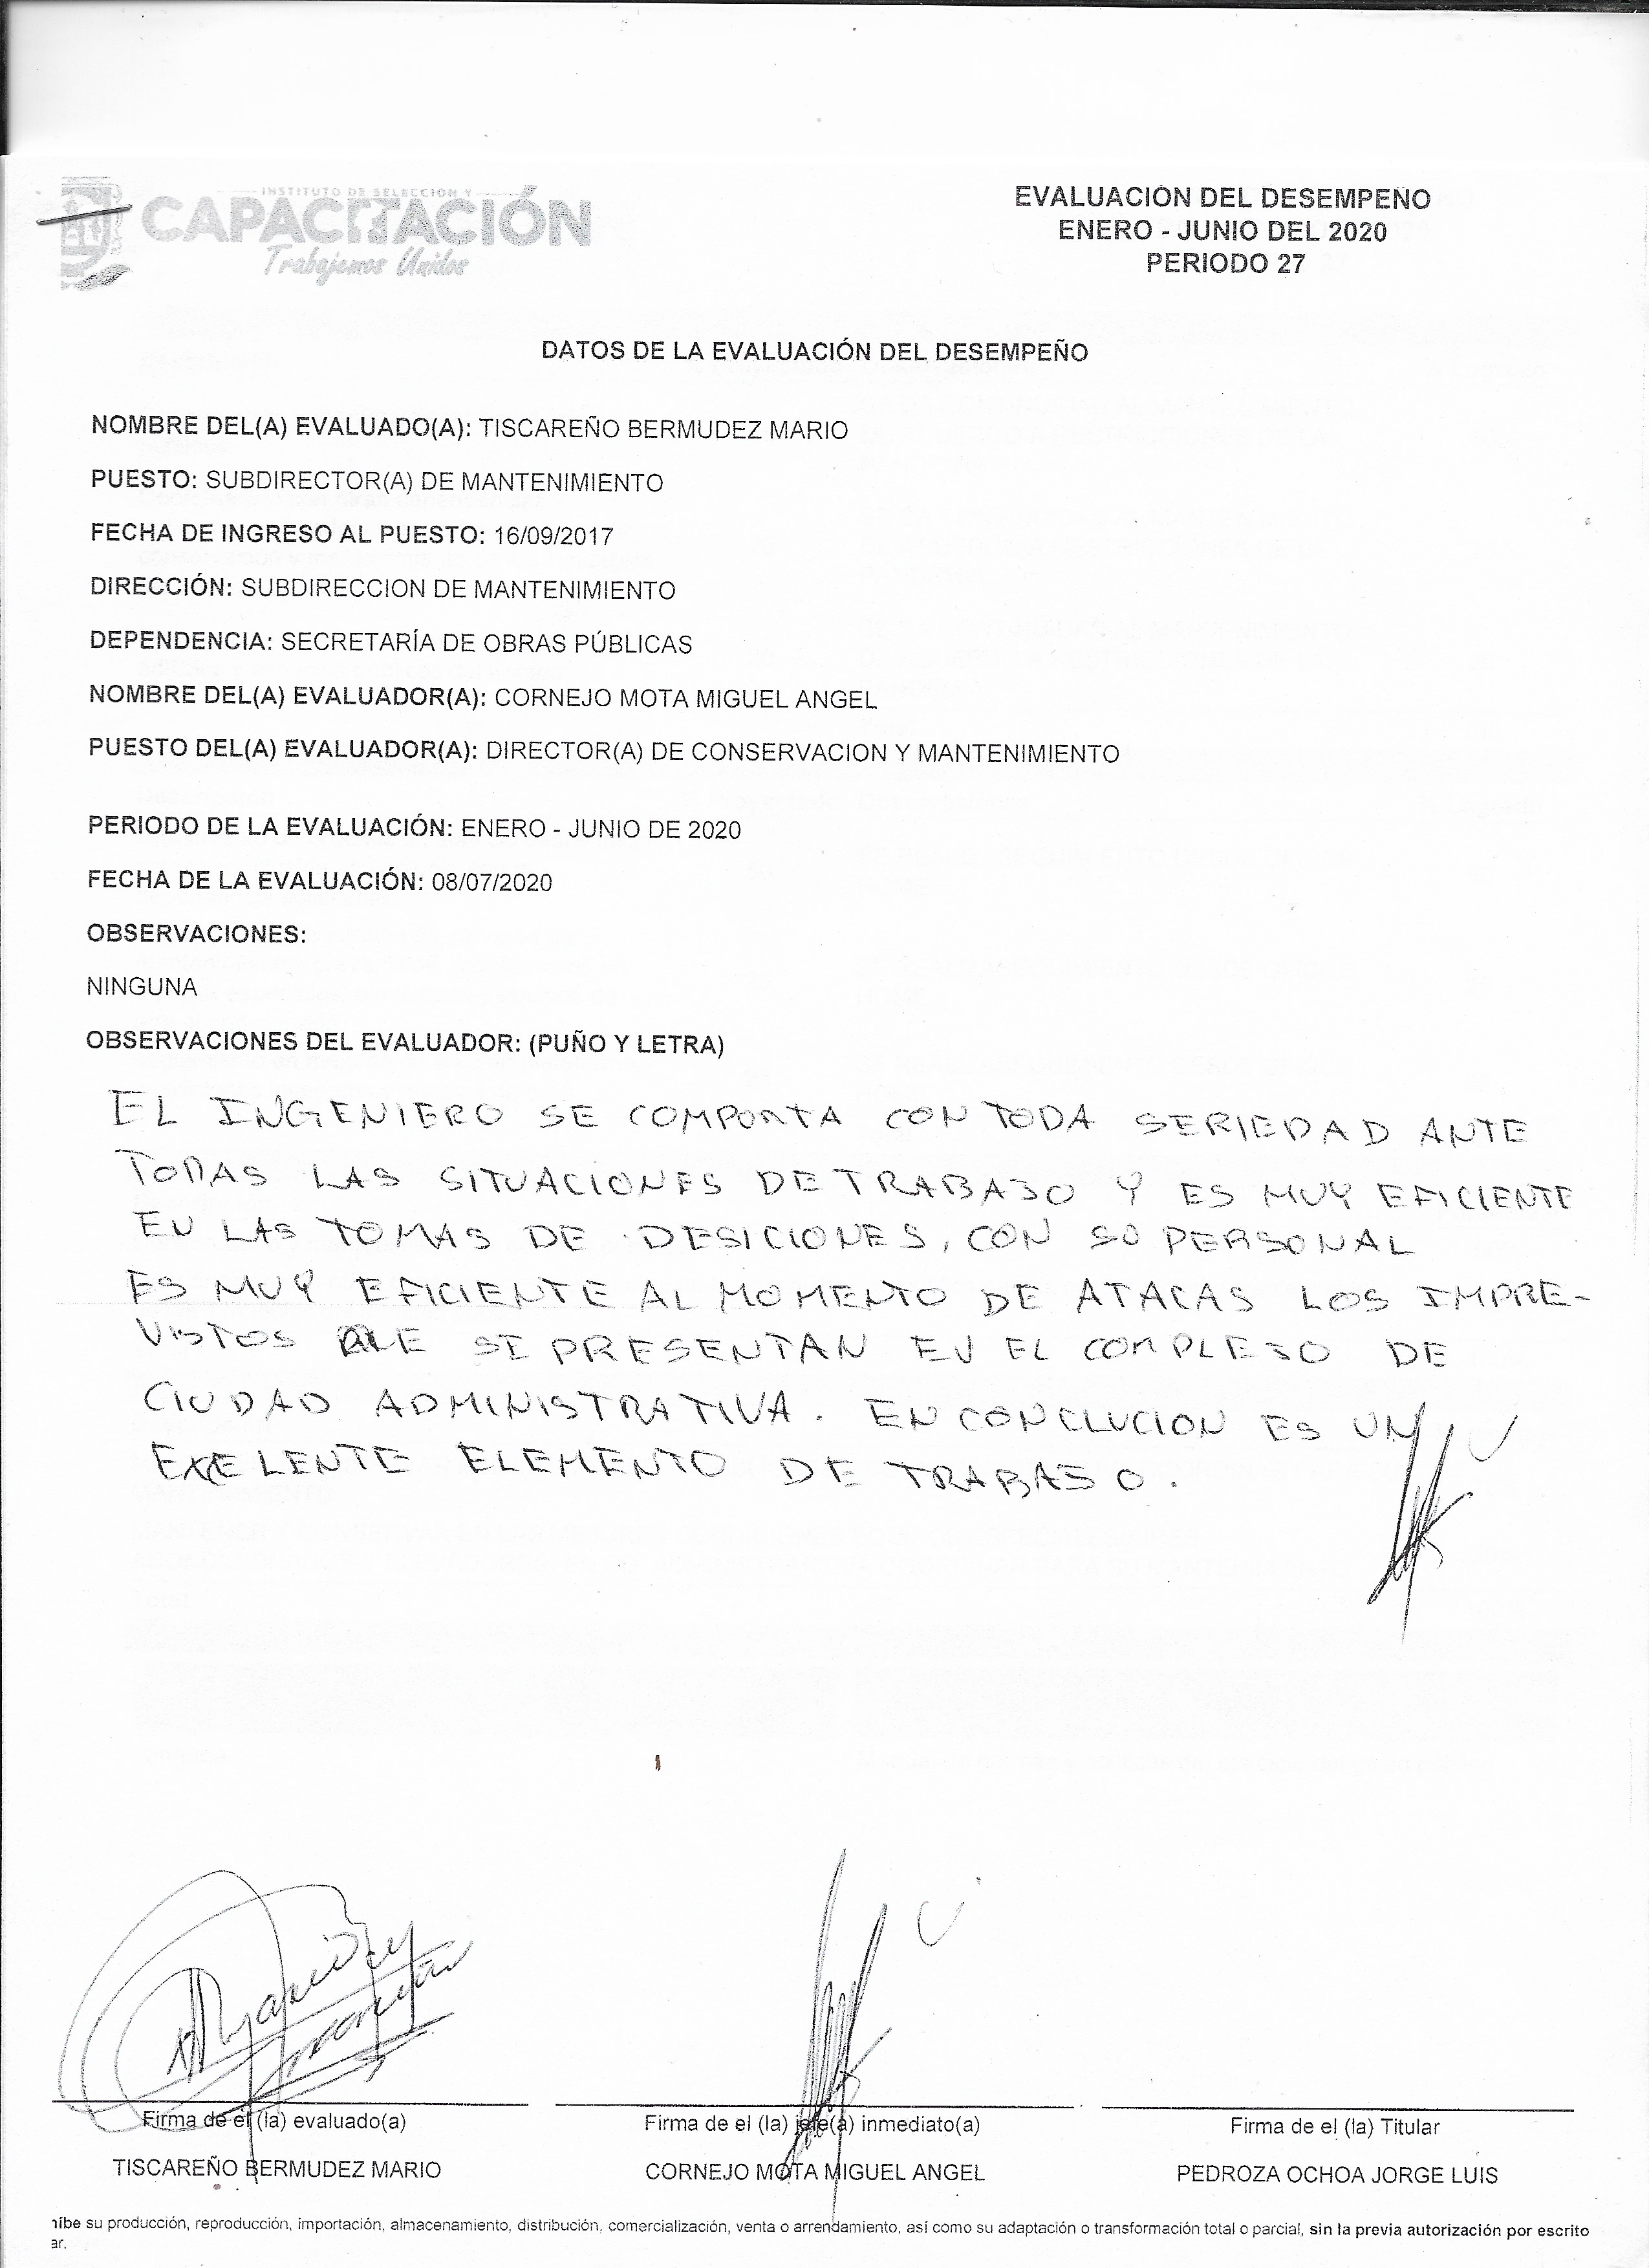 INSTITUTO DE SELECCIÓN Y
CAPACITACIÓN
Trabajemos Unidos
EVALUACIÓN DEL DESEMPEÑO
ENERO - JUNIO DEL 2020
PERIODO 27
DATOS DE LA EVALUACIÓN DEL DESEMPEÑO
NOMBRE DEL(A) EVALUADO(A): TISCAREÑO BERMUDEZ MARIO
PUESTO: SUBDIRECTOR(A) DE MANTENIMIENTO
FECHA DE INGRESO AL PUESTO: 16/09/2017
DIRECCIÓN: SUBDIRECCION DE MANTENIMIENTO
DEPENDENCIA: SECRETARÍA DE OBRAS PÚBLICAS
NOMBRE DEL(A) EVALUADOR(A): CORNEJO MOTA MIGUEL ANGEL
PUESTO DEL(A) EVALUADOR(A): DIRECTOR(A) DE CONSERVACION Y MANTENIMIENTO
PERIODO DE LA EVALUACIÓN: ENERO - JUNIO DE 2020
FECHA DE LA EVALUACIÓN: 08/07/2020
OBSERVACIONES:
NINGUNA
OBSERVACIONES DEL EVALUADOR: (PUÑO Y LETRA)
EL INGENIERO SE COMPORTA CON TODA SERIEDAD ANTE
TODAS LAS SITUACIONES DE TRABAJO Y ES MUY EFICIENTE
EN LAS TOMAS DE DESICIONES, CON SU PERSONAL
ES MUY EFICIENTE AL MOMENTO DE ATACAS LOS IMPRE-
VISTOS QUE SE PRESENTAN EN EL COMPLEJO DE
CIUDAD ADMINISTRATIVA. EN CONCLUCION ES UN
EXELENTE ELEMENTO DE TRABAJO.
Firma de el (la) evaluado(a)
Firma de el (la) jefe(a) inmediato(a)
Firma de el (la) Titular
TISCAREÑO BERMUDEZ MARIO
CORNEJO MOTA MIGUEL ANGEL
PEDROZA OCHOA JORGE LUIS
híbe su producción, reproducción, importación, almacenamiento, distribución, comercialización, venta o arrendamiento, así como su adaptación o transformación total o parcial, sin la previa autorización por escrito
ar.